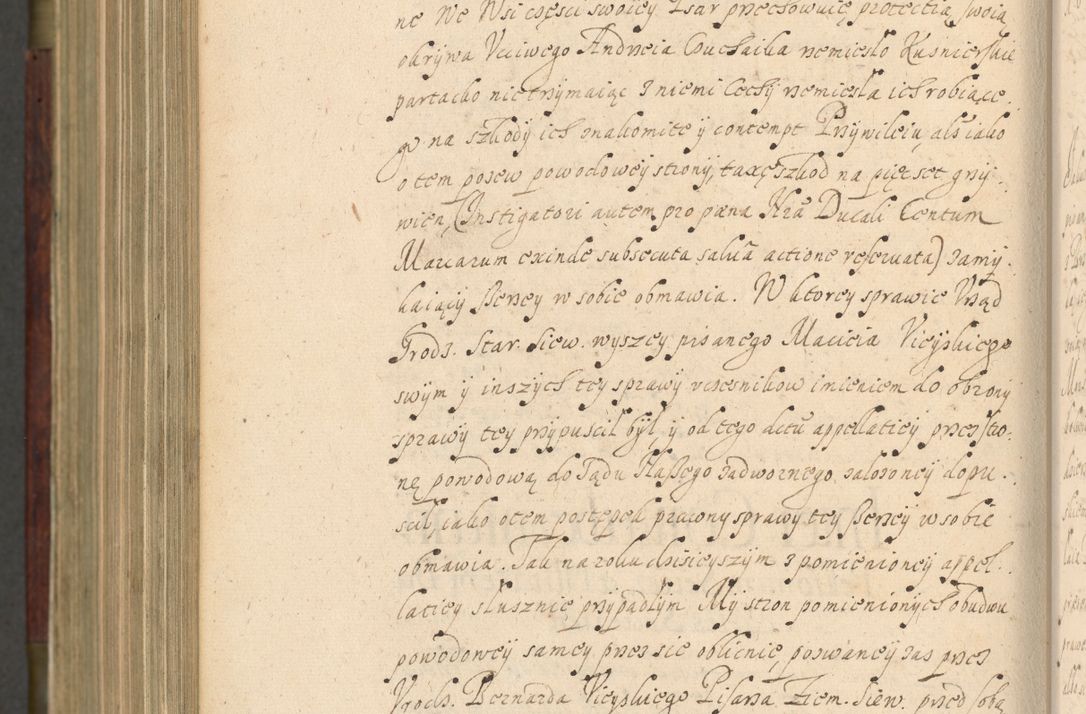 ne We Wsi częsci swoiey Isar przechowuię protectią swoią
okrywa Vcciwego Andrzeia Couchaika rzemiesło Kusnierskie
partacko nie trzymaiąc z niemi Cechy rzemiesła ich robiące.
go na szkody ich znakomite y contempt Przywileiu, als iako
o tem pozew powodowey strony, taxę szkod na pięcset grzy.
wien, (Instigatori autem pro pæna Nrã Ducali Centum
Marcarum exinde subsecuta salua actione reseruata) zamy.
kaiący szerzey w sobie obmawia. W ktorey sprawie Vrząd
Grodz. Star. Siew. wyszey pisanego Macieia Vieyskiego
swym y inszych tey sprawy vczesnikow imieniem do obrony
sprawy tey przypuscił był y od tego dctu appellatiey przez stro.
nę powodową do Sądu Naszego zadwornego założoney dopu.
scił, iako otem postępek prawny sprawy tey szerzey w sobie
obmawia. Tak na roku dzisieyszym z pomienioney appel.
latiey słusznie przypadłym My stron pomienionych obudwu
powodowey samey przez sie oblicnie, pozwaney zas przez
Vrodz. Bernarda Vieyskiego Pisarza Ziem. Siew. przed sobą